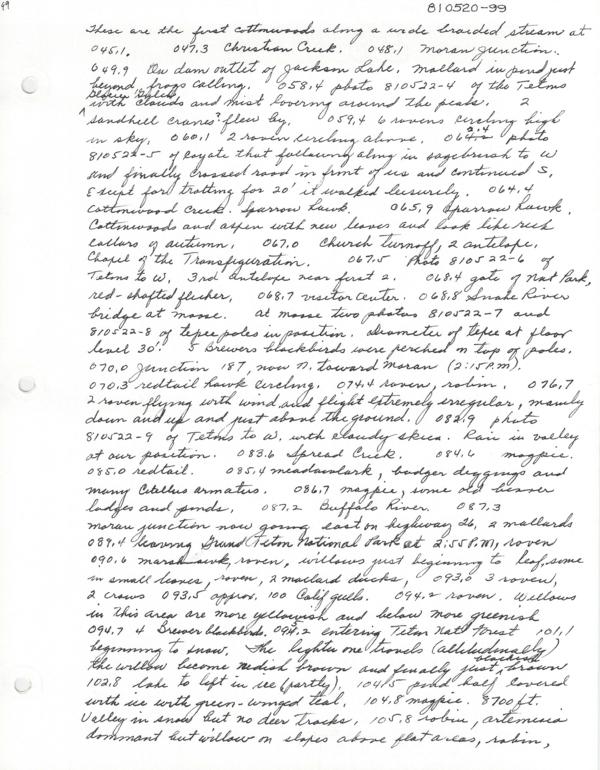 99
810520-99
These are the first cottonwoods along a wide braided stream at
045.1. 047.3 Christian Creek. 048.1 Moran Junction.
049.9 On dam outlet of Jackson Lake. Mallard in pond just
beyond, frogs calling. 058.4 photo 810522-4 of the Tetons
with clouds and mist hovering around the peaks. 2
sandhill cranes? flew by. 059.4 6 ravens circling high
in sky. 060.1 2 raven circling above. photo
810522-5 of coyote that following along in sagebrush to W
and finally crossed road in front of us and continued S.
Except for trotting for 20' it walked leisurely. 064.4
Cottonwood Creek. Sparrow hawk. 065.9 Sparrow hawk.
Cottonwoods and aspen with new leaves and look like rich
colors of autumn. 067.0 Church turnoff, 2 antelope.
Chapel of the Transfiguration. 067.5 Photo 810522-6 of
Tetons to W. 3rd antelope near first 2. 068.4 gate of Nat Park,
red-shafted flicker. 068.7 visitor center. 068.8 Snake River
bridge at moose. At moose two photos 810522-7 and
810522-8 of tepee poles in position. Diameter of tepee at floor
level 30'. 5 Brewers blackbirds were perched on top of poles.
070.0 Junction 187, now N. toward Moran (2:15 P.M.).
070.3 redtail hawk circling. 074.4 raven, robin. 076.7
2 raven flying with wind and flight extremely irregular, mainly
down and up and just above the ground. 082.9 photo
810522-9 of Tetons to W, with cloudy skies. Rain in valley
at our position. 083.6 Spread Creek. 084.6 magpie.
085.0 redtail. 085.4 meadowlark, badger diggings and
many Citellus armatus. 086.7 magpie, some old beaver
lodges and ponds. 087.2 Buffalo River. 087.3
Moran junction now going east on highway 26, 2 mallards
089.4 leaving Grand Teton National Park at 2:55 P.M., raven
090.6 marsh hawk, raven, willows just beginning to leaf, some
in small leaves, raven, 2 mallard ducks, 093.0 3 raven,
2 crows 093.5 approx. 100 Calif gulls. 094.2 raven. Willows
in this area are more yellowish and below more greenish
094.7 4 Brewer blackbirds. entering Teton Nat Forest 101.1
beginning to snow. The higher one travels (altitudinally)
the willow become reddish brown and finally just blackish brown
102.8 lake to left in ice (partly). 104.5 pond half covered
with ice with green-winged teal. 104.8 magpie. 8700 ft.
Valley in snow but no deer tracks. 105.8 robin, artemisia
dominant but willow on slopes above flat areas, robin,